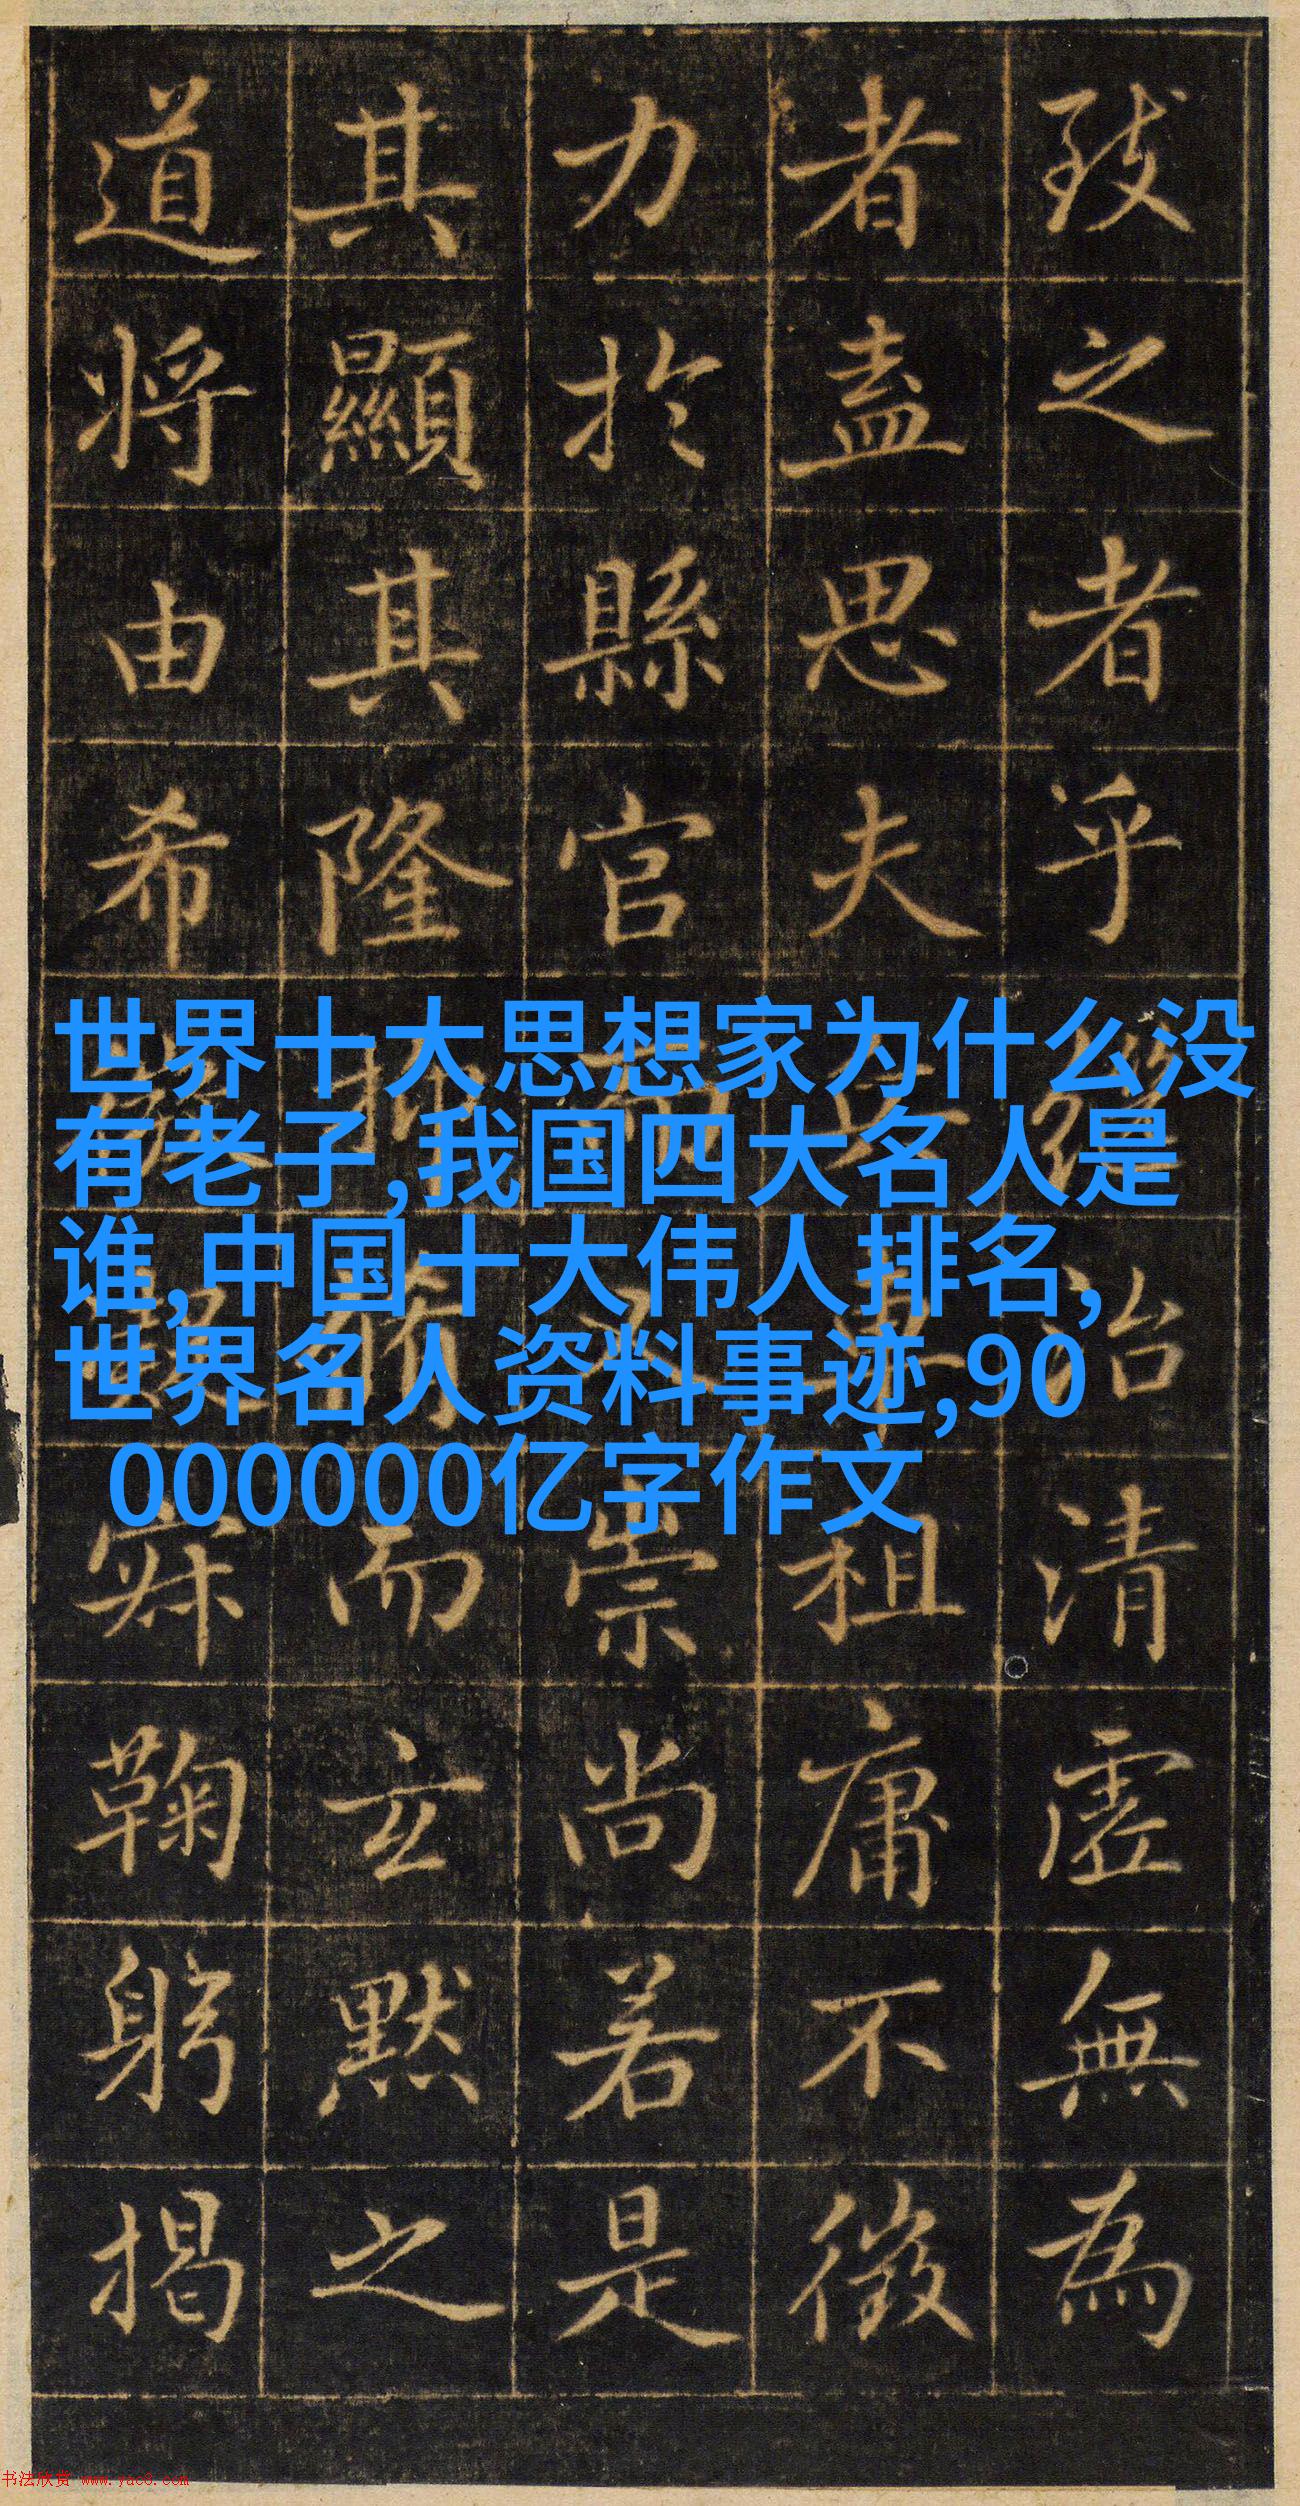 致之者乎治清虛無為
者盡思夫租庸不徵
力於縣官崇尚若是
其顯其隆而玄默之
道將由希鞠躬揭
世界十大思想家为什么没
有老子,我国四大名人是
谁,中国十大伟人排名,
世界名人资料事迹,90
000000亿字作文
书法欣赏 www.yac8.com